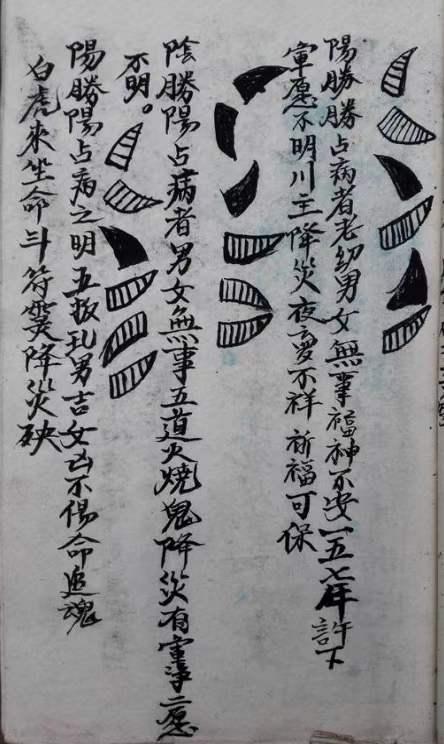 陽勝勝占病者老幼男女無事福神不安一五七年許下
灶愿不明川主降災夜夢不祥祈福可保
陰勝陽占病者男女無事五道火燒鬼降災有灶二愿
不明。
陽勝陽占病之明五叛乱男吉女凶不傷命追魂
白虎來坐命斗符灵降災殃